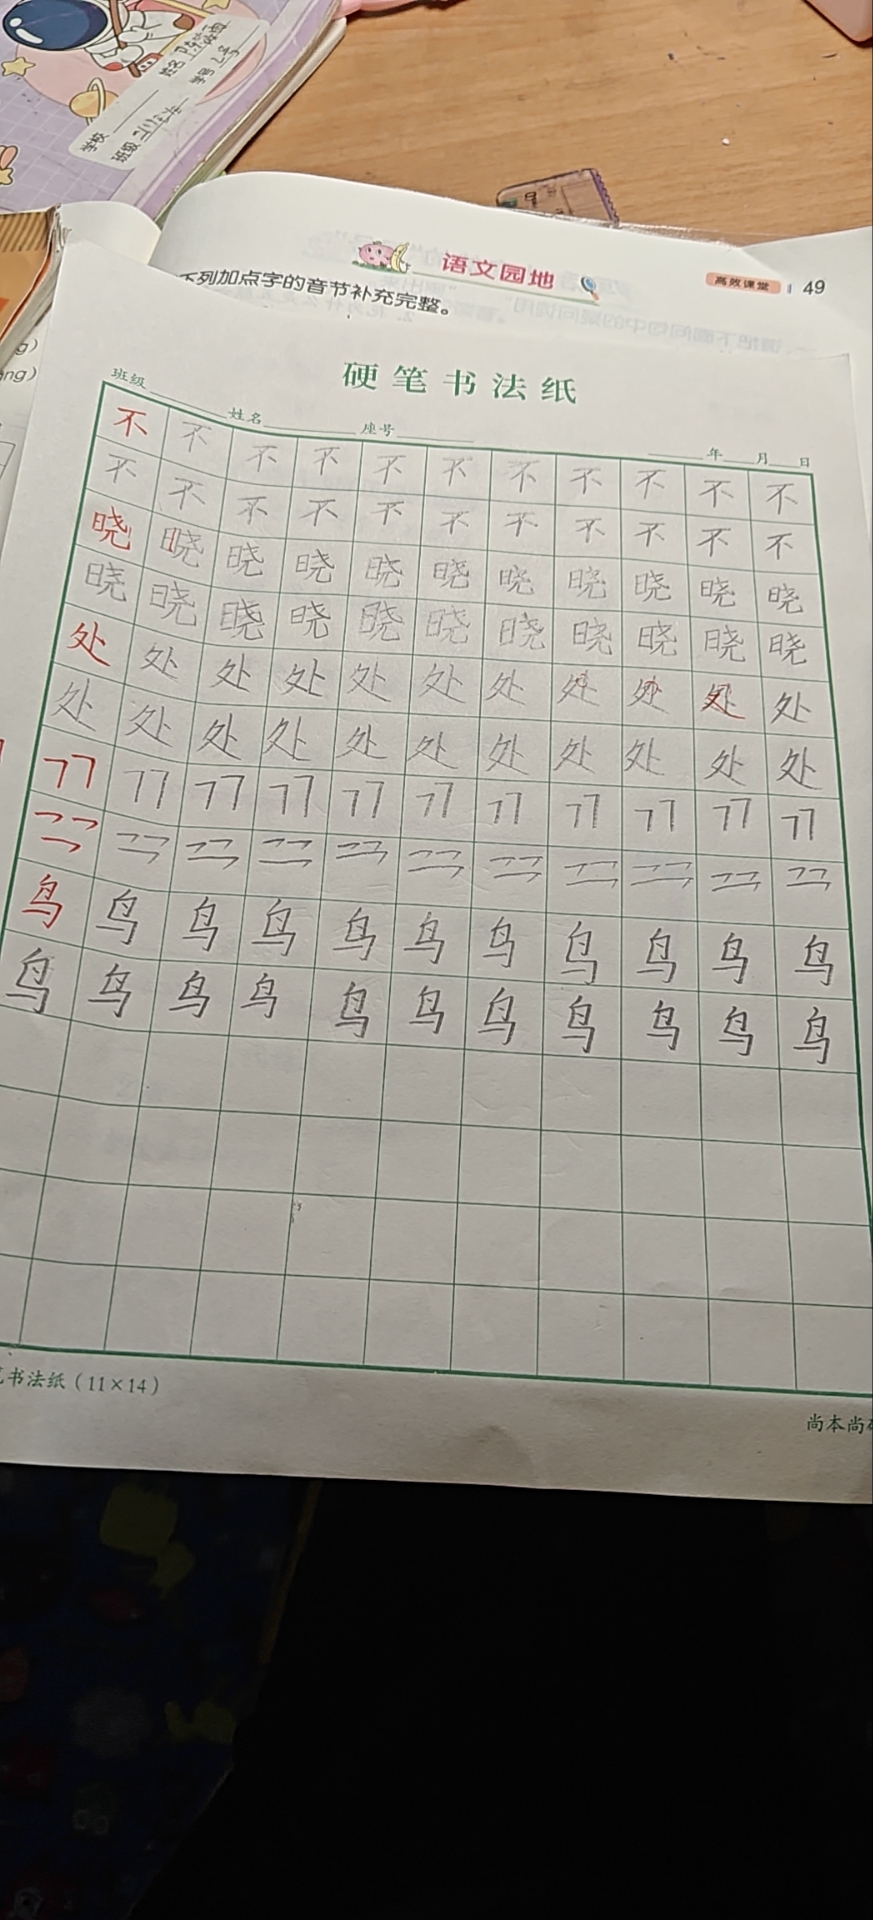 学校
班级
姓名
学号
语文园地
高效课堂 49
下列加点字的音节补充完整。
硬笔书法纸
班级 姓名 座号 年 月 日
不 不 不 不 不 不 不 不 不 不 不
不 不 不 不 不 不 不 不 不 不 不
晓 晓 晓 晓 晓 晓 晓 晓 晓 晓 晓
晓 晓 晓 晓 晓 晓 晓 晓 晓 晓 晓
处 处 处 处 处 处 处 处 处 处 处
处 处 处 处 处 处 处 处 处 处 处
鸟 鸟 鸟 鸟 鸟 鸟 鸟 鸟 鸟 鸟 鸟
鸟 鸟 鸟 鸟 鸟 鸟 鸟 鸟 鸟 鸟 鸟
书法纸(11×14)
尚本尚